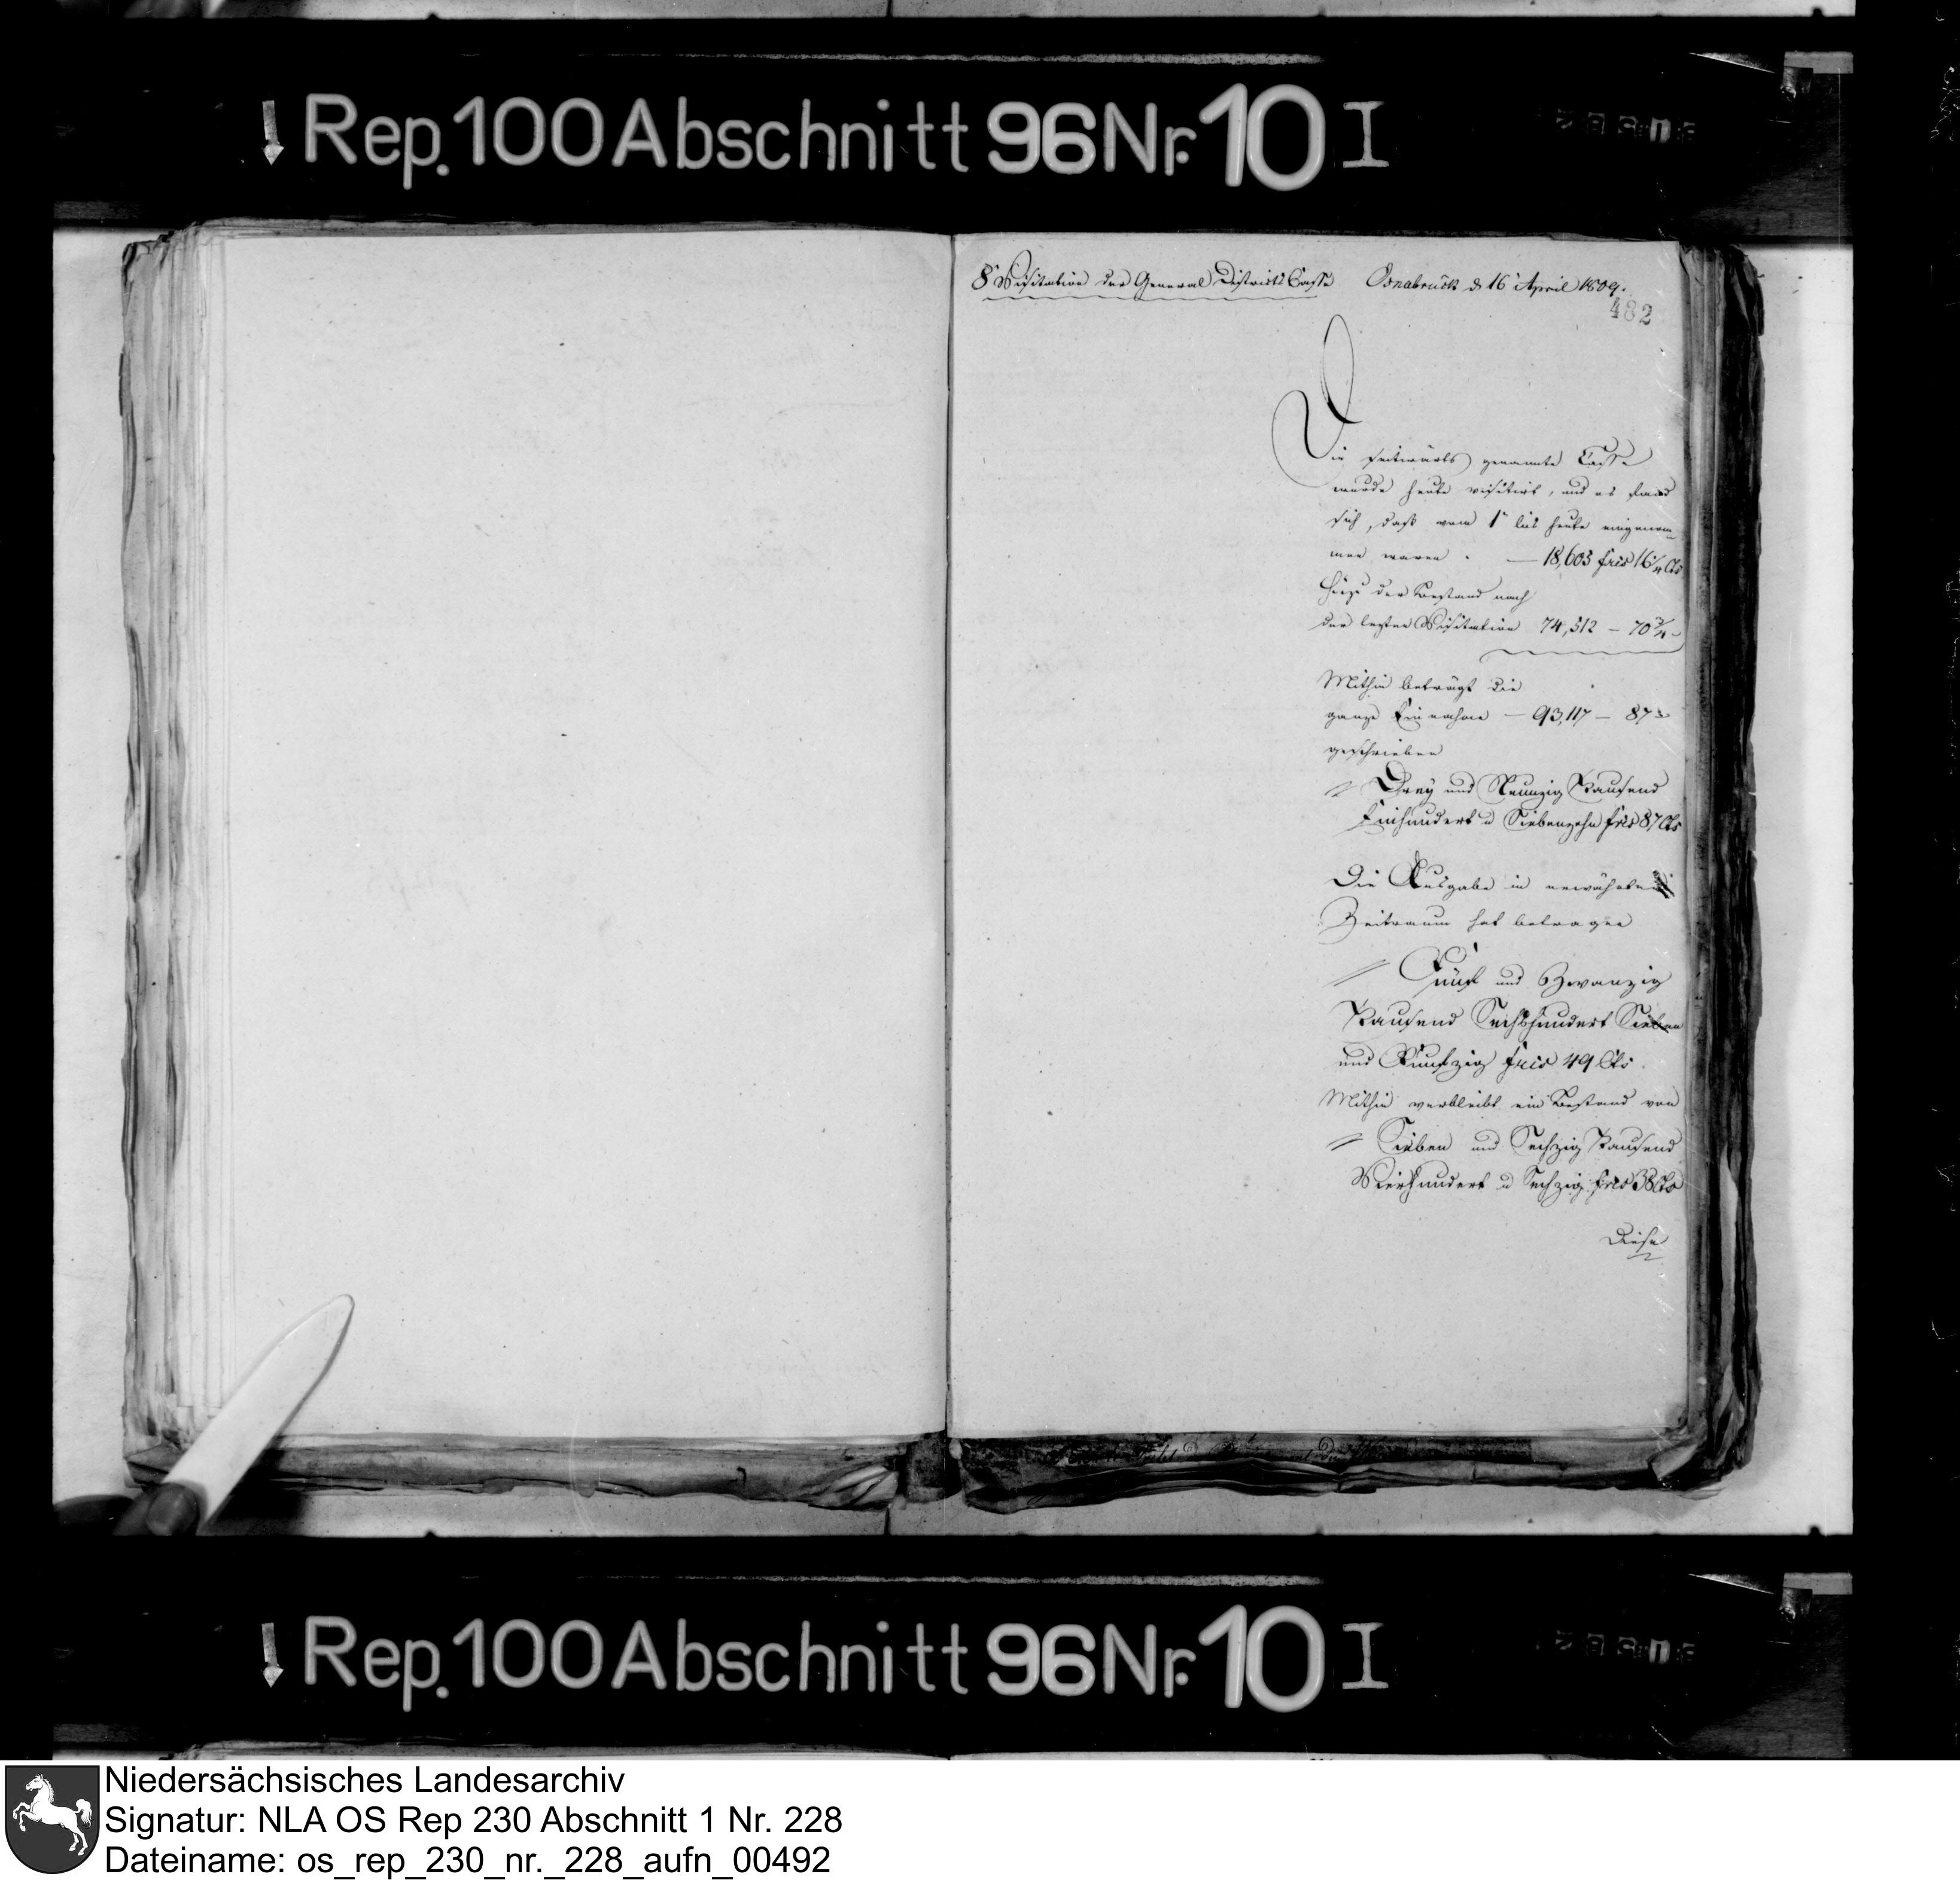 Rep. 100 Abschnitt 96 Nr. 10 I
8' Visitation der General Districts Casse Osnabrück d 16' April 1809.
482
Die seitwärts genannte Casse
wurde heute visitirt, und es fand
sich, daß vom 1' bis heute eingenom¬
men waren . — 18,603 frcs 16 1/4 Cts
Hiezu der Bestand nach
der lezten Visitation 74,512 – 70 3/4 –
Mithin beträgt die
ganze Einnahme — 93,117 – 87
geschrieben
// Drey und Neunzig Tausend
Einhundert u Siebenzehn frcs 87 Cts
Die Ausgabe in erwähnten
Zeitraum hat betragen
// Fünf und Zwanzig
Tausend Sechshundert Sieben
und Funfzig frcs 49 Cts.
Mithin verbleibt ein Bestand von
// Sieben und Sechzig Tausend
Vierhundert u Sechzig frcs 38 Cts
Diese
Rep. 100 Abschnitt 96 Nr. 10 I
Niedersächsisches Landesarchiv
Signatur: NLA OS Rep 230 Abschnitt 1 Nr. 228
Dateiname: os_rep_230_nr._228_aufn_00492